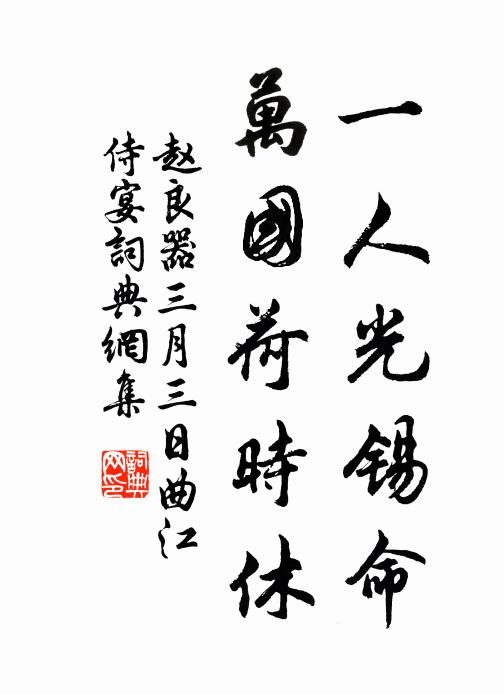 一人光錫命
萬國荷時休
赵良器三月三日曲江
侍宴詞典網集
詞典
网印